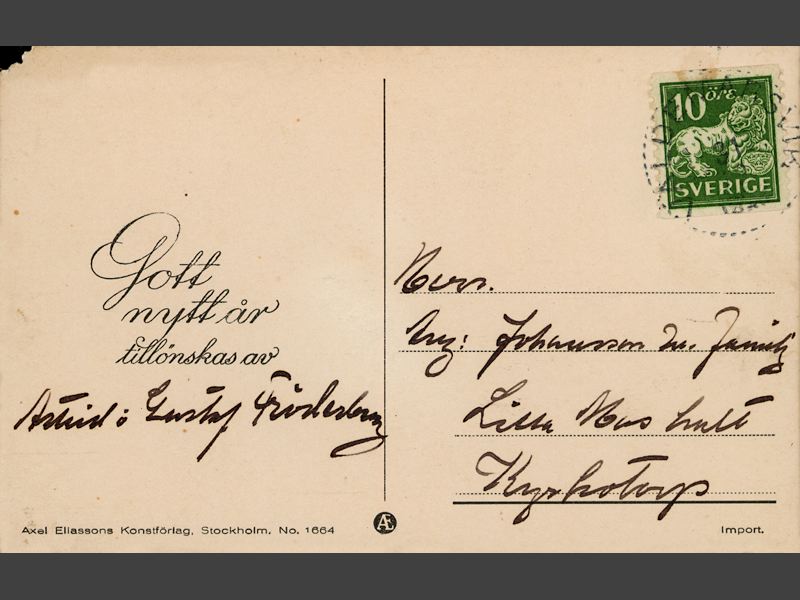 10 ÖRE
SVERIGE
VALDEMARSVIK
Gott
nytt år
tillönskas av
Astrid o Gustaf Söderberg
Herr.
Johansson m. Familj
Lilla
Kyrkotorp
Axel Eliassons Konstförlag, Stockholm. No. 1664
Æ
Import.